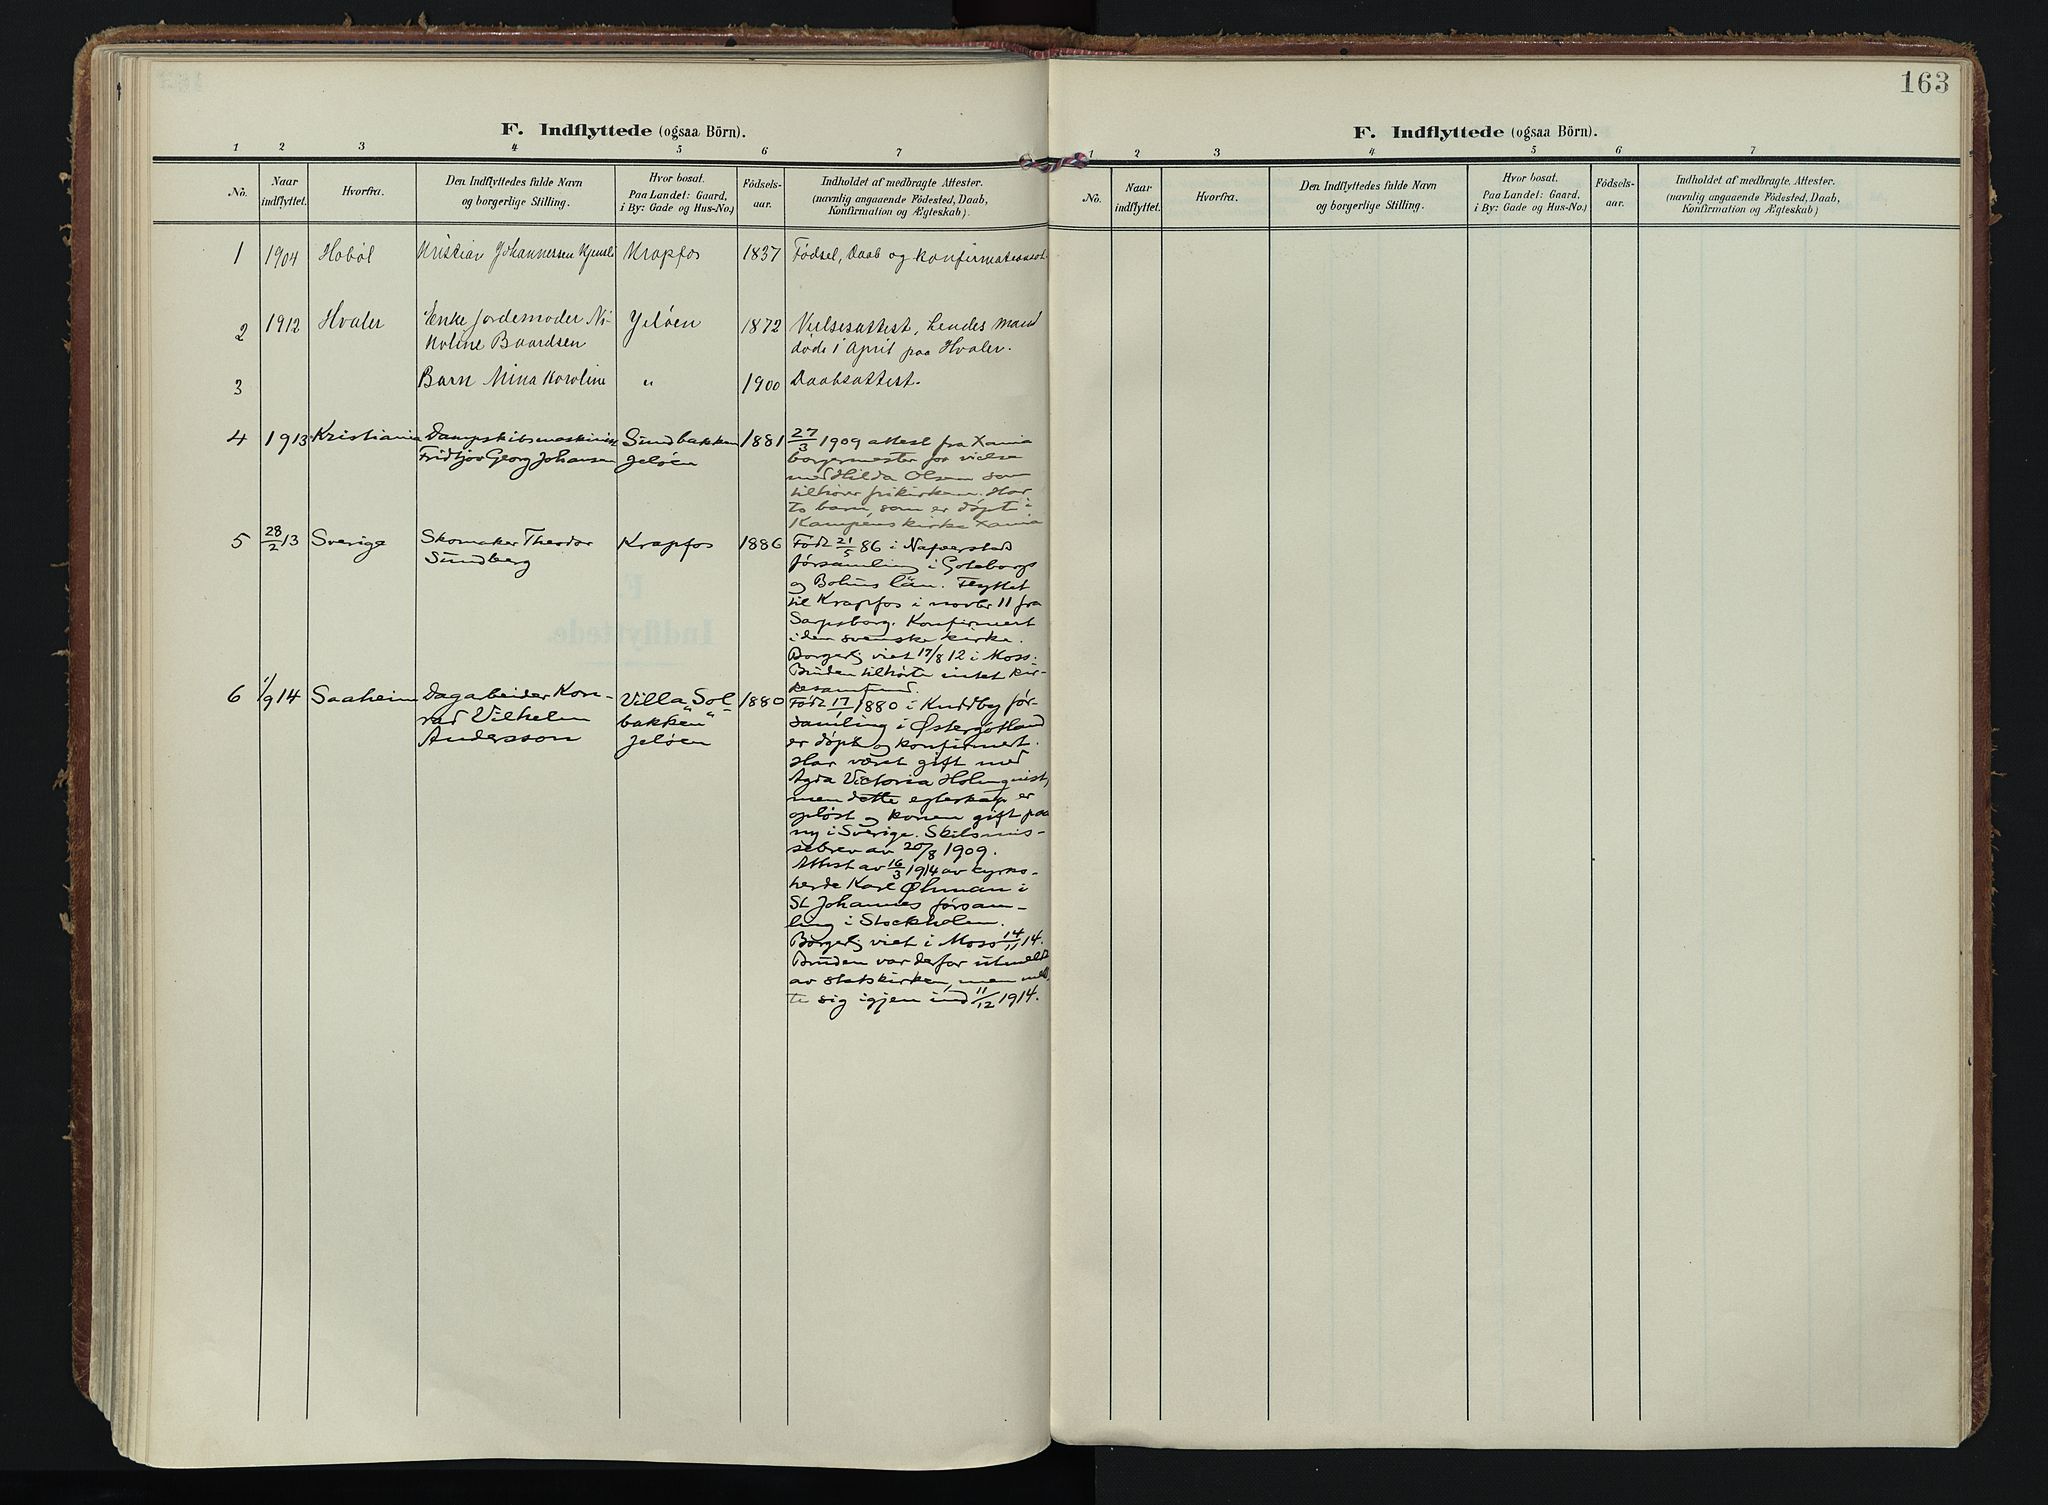 F. Indflyttede (ogsaa Börn).
1 2 3 4 5 6 7
No. Naar indflyttet. Hvorfra. Den Indflyttedes fulde Navn og borgerlige Stilling. Hvor bosat. Paa Landet: Gaard, i By: Gade og Hus-No.) Födsels-aar. Indholdet af medbragte Attester. (navnlig angaaende Födested, Daab, Konfirmation og Ægteskab).
1 1904 Hobøl Kristian Johannessen Krapfos 1837 Fødsel, Daab og konfirmationsat.
2 1912 Hvaler Enke Jordemoder Ni- Jeløen 1872 Vielsesattest, hendes mand
koline Baardsen døde 1 April paa Hvaler.
3 Barn Mina Karoline " 1900 Daabsattest.
4 1913 Kristiania Dampskibsmaskinist Sundbakken 1881 27/3 1909 attest fra Xania
Fridtjov Georg Johansen Jeløen borgermester for vielse
med Hilda Olsen som
tilhører frikirken. Har
to barn, som er døpt i
Kampens kirke Xania
5 28/2 13 Sverige Skomaker Theodor Krapfos 1886 Født 21/5 86 i Naverstad
Sundberg församling i Goteborgs
og Bohus län. Flyttet
til Krapfos i novbr 11 fra
Sarpsborg. Konfirmert
i den svenske kirke.
Borgerlig viet 17/8 12 i Moss.
Bruden tilhørte intet kir-
kesamfund.
6 1/9 14 Saaheim Dagarbeider Kon- Villa „Sol- 1880 Født 17/1 1880 i Kuddby för-
rad Vilhelm bakken" samling i Østergötland
Andersson Jeløen er døpt og konfirmert.
Har været gift med
Agda Victoria Holmqvist,
men dette egteskap er
opløst og konen gift paa
ny i Sverige. Skilsmis-
sebrev av 20/8 1909.
Attest av 16/3 1914 av kyrko-
herde Karl Øhman i
St Johannes försam-
ling i Stockholm.
Borgerlig viet i Moss 14/11 14.
Bruden var derfor utmeldt
av statskirken, men meld-
te sig igjen ind 11/12 1914.
163
F. Indflyttede (ogsaa Börn).
1 2 3 4 5 6 7
No. Naar indflyttet. Hvorfra. Den Indflyttedes fulde Navn og borgerlige Stilling. Hvor bosat. Paa Landet: Gaard, i By: Gade og Hus-No.) Födsels-aar. Indholdet af medbragte Attester. (navnlig angaaende Födested, Daab, Konfirmation og Ægteskab)